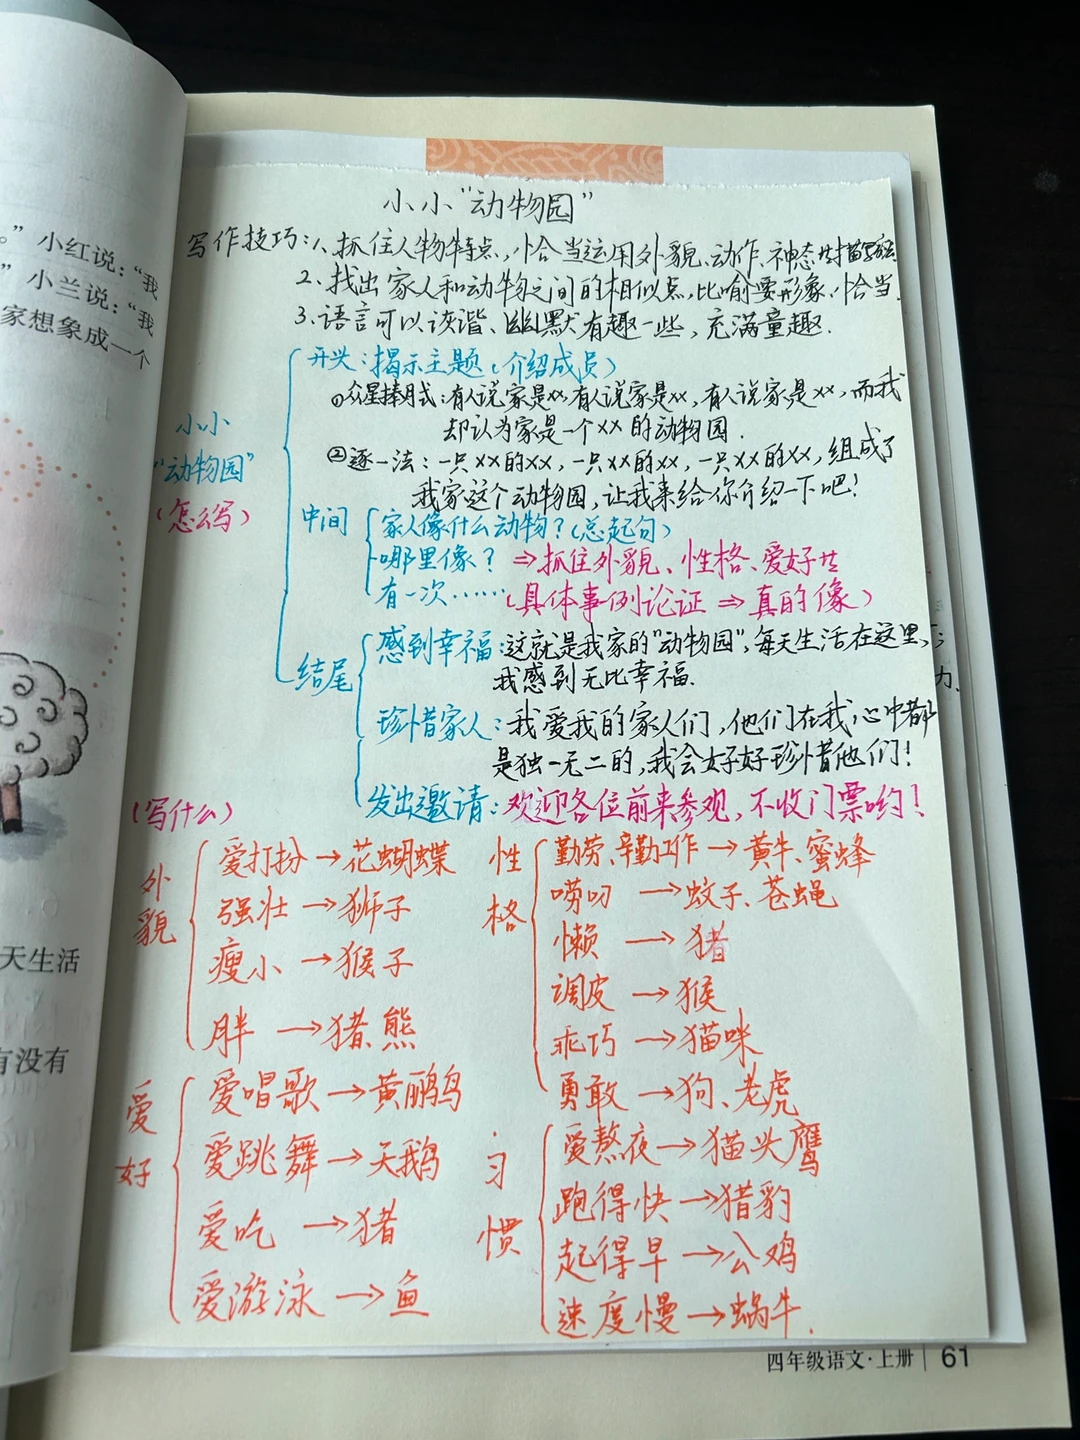 。”小红说：“我
”小兰说：“我
家想象成一个
天生活
有没有
小小“动物园”
写作技巧：1、抓住人物特点，恰当运用外貌、动作、神态等描写方法
2、找出家人和动物之间的相似点，比喻要形象、恰当.
3、语言可以诙谐、幽默有趣一些，充满童趣.
小小
“动物园”
(怎么写)
开头：揭示主题(介绍成员)
①众星捧月式：有人说家是xx，有人说家是xx，有人说家是xx，而我
却认为家是一个xx的动物园.
②逐一法：一只xx的xx，一只xx的xx，一只xx的xx，组成了
我家这个动物园，让我来给你介绍一下吧！
中间
家人像什么动物？(总起句)
哪里像？⇒抓住外貌、性格、爱好等
有一次……(具体事例论证⇒真的像)
结尾
感到幸福：这就是我家的“动物园”，每天生活在这里，
我感到无比幸福.
珍惜家人：我爱我的家人们，他们在我心中都
是独一无二的，我会好好珍惜他们！
发出邀请：欢迎各位前来参观，不收门票哟！
(写什么)
外貌
爱打扮→花蝴蝶
强壮→狮子
瘦小→猴子
胖→猪、熊
性格
勤劳、辛勤工作→黄牛、蜜蜂
唠叨→蚊子、苍蝇
懒→猪
调皮→猴
乖巧→猫咪
勇敢→狗、老虎
爱好
爱唱歌→黄鹂鸟
爱跳舞→天鹅
爱吃→猪
爱游泳→鱼
习惯
爱熬夜→猫头鹰
跑得快→猎豹
起得早→公鸡
速度慢→蜗牛.
力.
四年级语文·上册 61